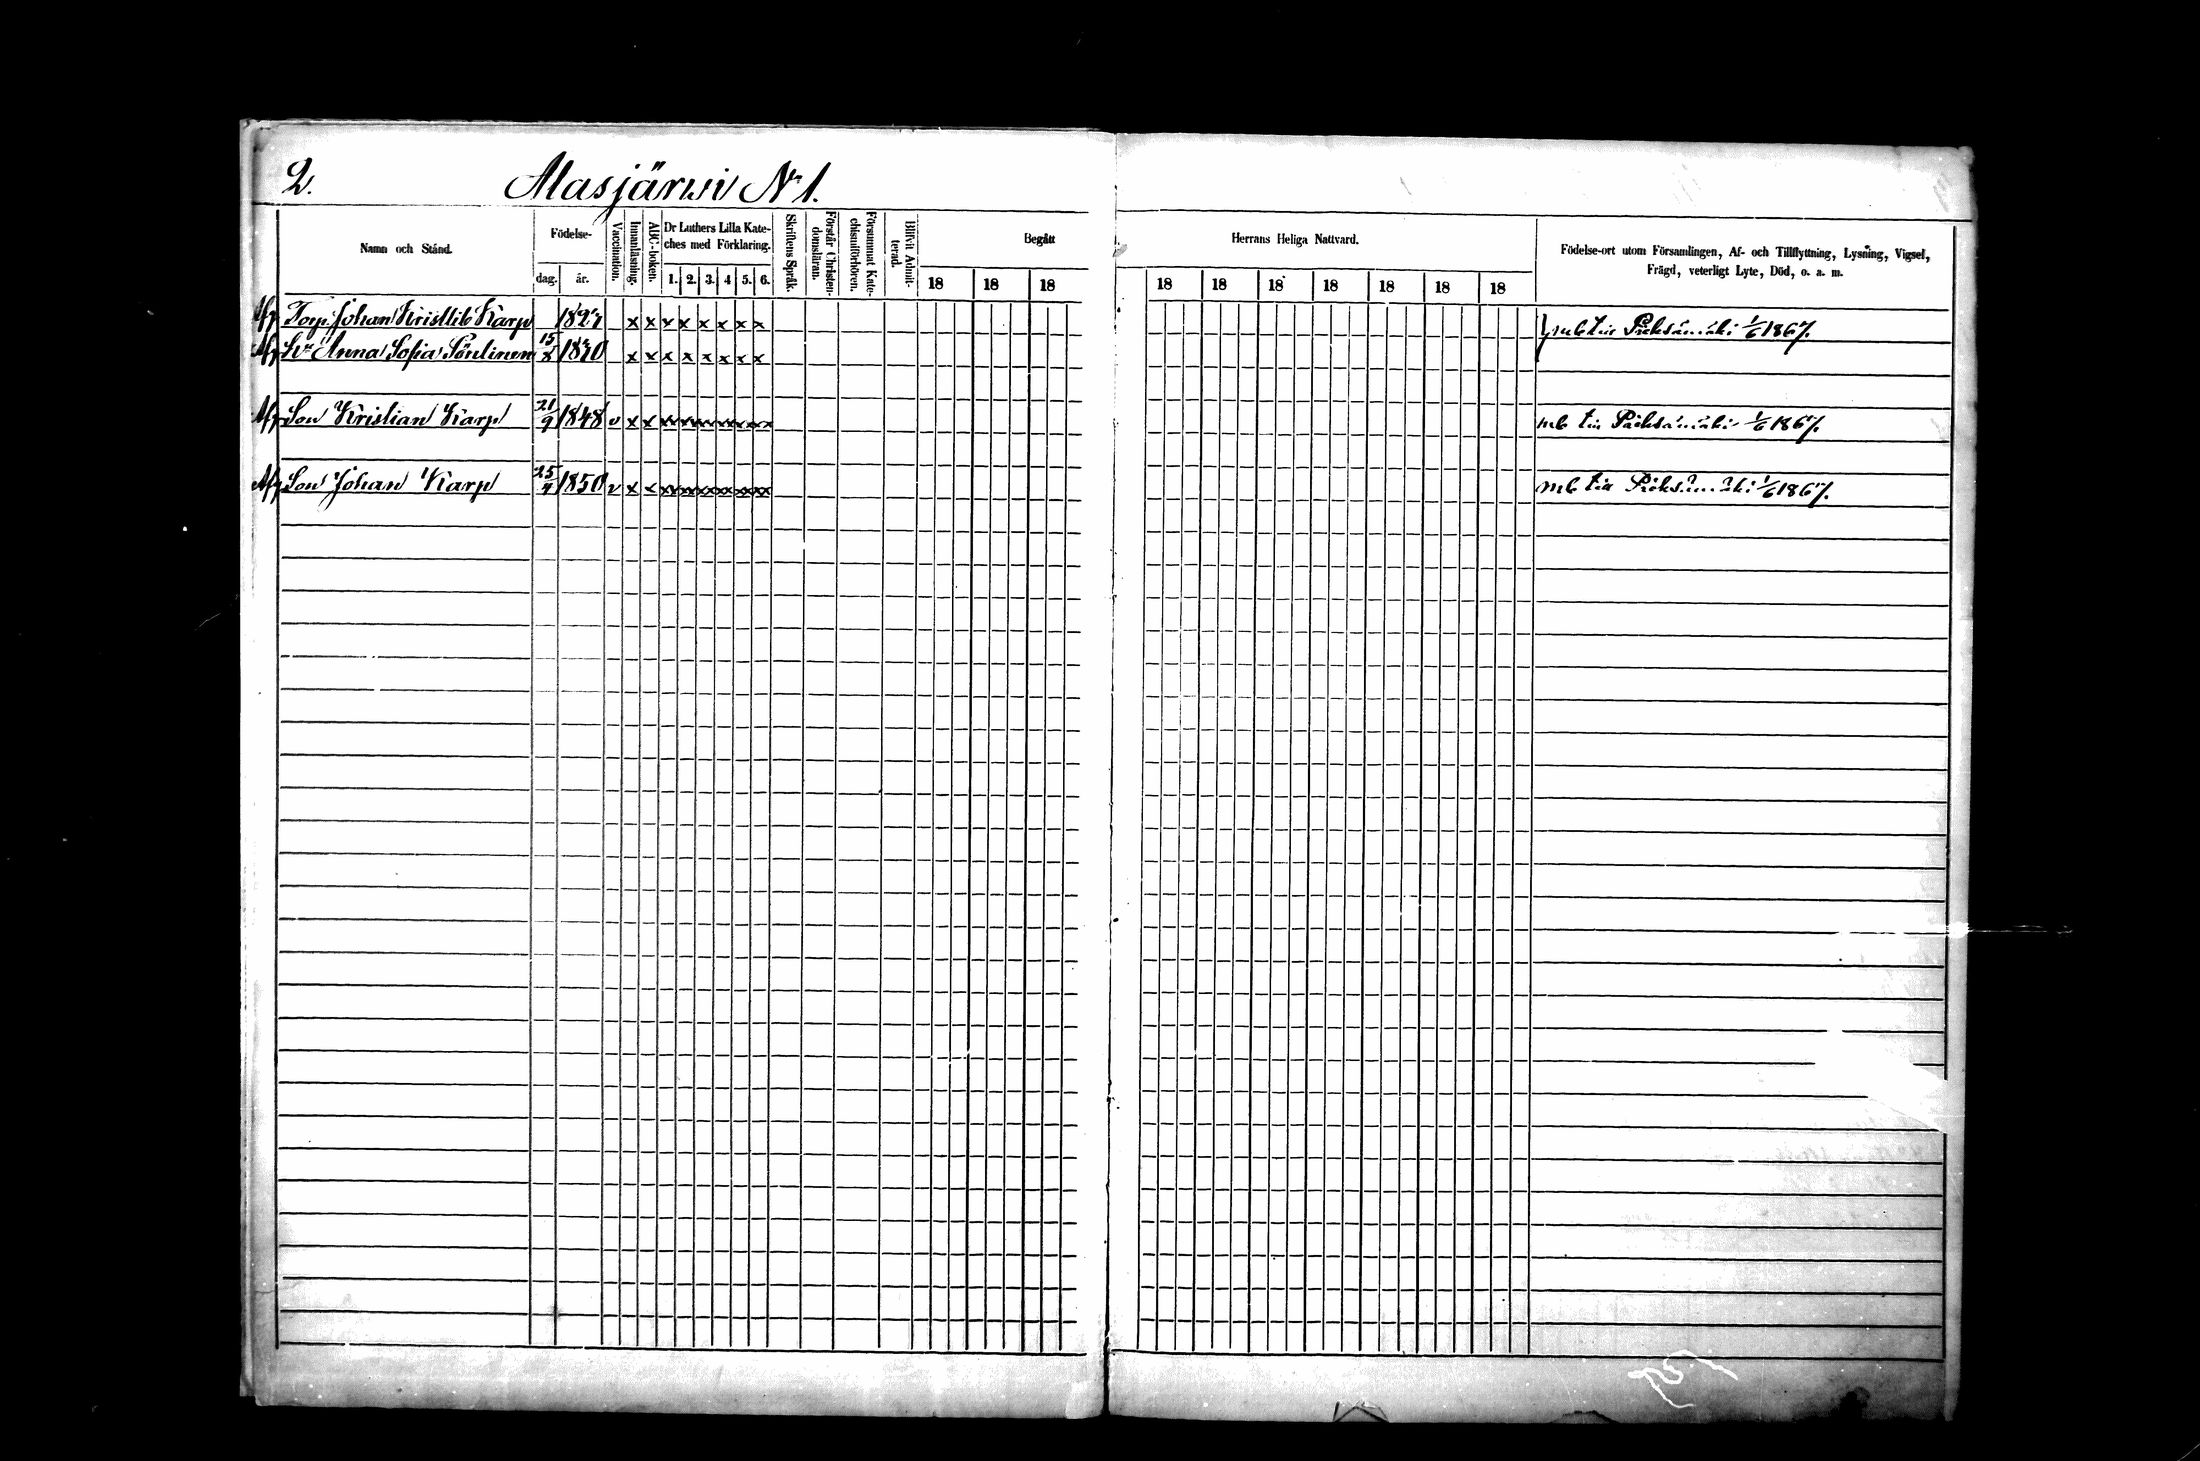 2. Alasjärwi No 1.
Namn och Stånd.
Födelse-
dag. år.
Vaccination.
Innanläsning.
ABC-boken.
Dr Luthers Lilla Kate-
ches med Förklaring.
1. 2. 3. 4 5. 6.
Skriftens Språk.
Förstår Christen-
domsläran.
Försummat Kate-
chismiförhören.
Blifvit Admit-
terad.
Begått
18 18 18
Herrans Heliga Nattvard.
18 18 18 18 18 18 18
Födelse-ort utom Församlingen, Af- och Tillflyttning, Lysning, Vigsel,
Frägd, veterligt Lyte, Död, o. a. m.
Torp. Johan Karp x x x x x x x x 1/6 1867.
Anna Sofia 15 x x x x x x x x
Son Kristian Karp 21/9 1848 v x x mb 1/6 1867.
Son Johan Karp 1850 v x x mb 1/6 1867.